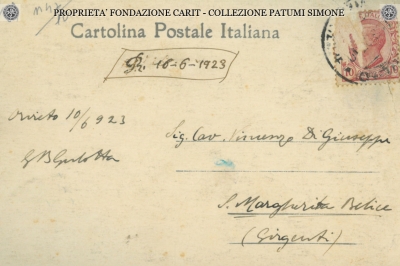 PROPRIETA' FONDAZIONE CARIT - COLLEZIONE PATUMI SIMONE
Cartolina Postale Italiana
16-6-1923
Orvieto 10/6 923
Sig. Cav. Vincenzo Di Giuseppe
S. Margherita Belice
(Girgenti)